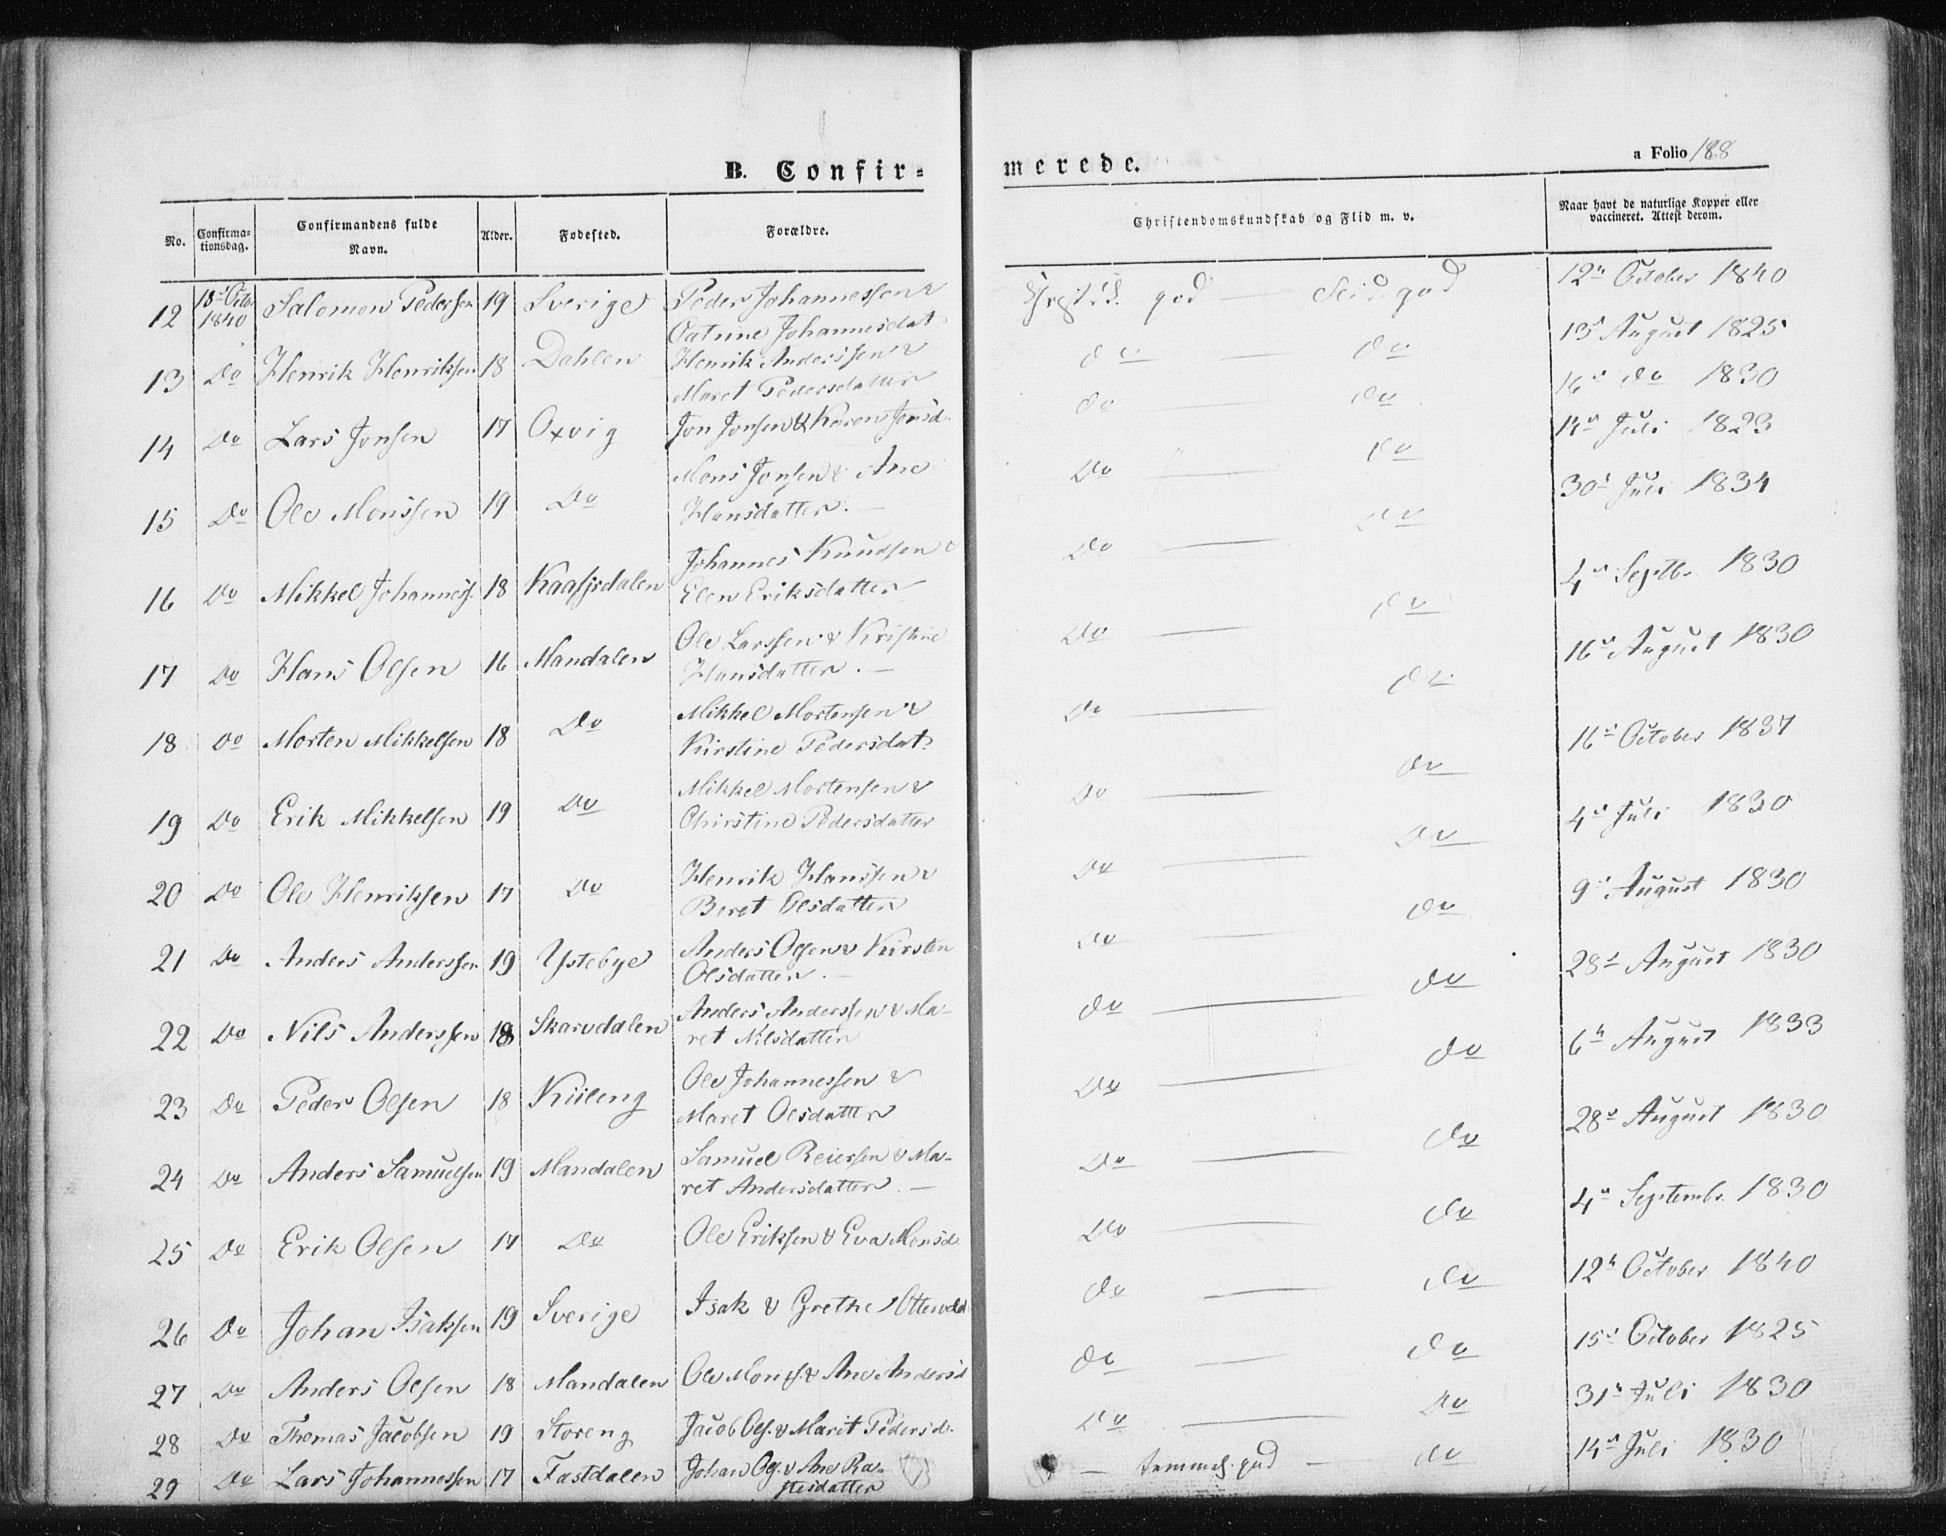 B. Confir-
merede.
a Folio 188
No.
Confirma-
tionsdag.
Confirmandens fulde
Navn.
Alder.
Fødested.
Forældre.
Christendomskundskab og Flid m. v.
Naar havt de naturlige Kopper eller
vaccineret. Attest derom.
12 18de Octbr 1840 Salomon Pedersen 19 Sverige Peder Johannessen &
Catrine Johannesdat
god god 12te October 1840
13 Do Henrik Henriksen 18 Dahlen Henrik Anderssen &
Maret Pedersdatter
do do 13de August 1825
14 Do Lars Jonsen 17 Oxvig Jon Jonsen & Karen Jonsd.
do do 16de do 1830
15 Do Ole Monssen 19 Do Mons Jonsen & Ane
Hansdatter.
Do do 14de Juli 1823
16 Do Mikkel Johanness. 18 Kaafjrdalen Johannes Knudsen &
Elen Eriksdatter
Do do 30te Juli 1834
17 Do Hans Olsen 16 Mandalen Ole Larssen & Kristine
Hansdatter.
Do do 4de Septbr 1830
18 Do Morten Mikkelsen 18 Do Mikkel Mortensen &
Kirstine Pedersdat.
Do do 16de August 1830
19 Do Erik Mikkelsen 19 Do Mikkel Mortensen &
Chirstine Pedersdatter
Do do 16de October 1837
20 Do Ole Henriksen 17 Do Henrik Hanssen &
Beret Olsdatter
Do do 4de Juli 1830
21 Do Anders Anderssen 19 Ystebye Anders Olsen & Kirsten
Olsdatter.
Do do 9de August 1830
22 Do Nils Anderssen 18 Skarvdalen Anders Anderssen & Ma-
ret Nilsdatter
do do 28de August 1830
23 Do Peder Olsen 18 Kiileng Ole Johannessen &
Maret Olsdatter
Do do 6te August 1833
24 Do Anders Samuelsen 19 Mandalen Samuel Reiersen & Ma-
ret Andersdatter.
Do do 28de August 1830
25 Do Erik Olsen 17 Do Ole Eriksen & Eva Monsd.
Do do 4de Septembr. 1830
26 Do Johan Isaksen 19 Sverige Isak & Grethe
do do 12te October 1840
27 Do Anders Olsen 18 Mandalen Ole Mons. & Ane Andersd
do do 15de October 1825
28 Do Thomas Jacobsen 19 Storeng Jacob Ols. & Marit Pedersd.
Do do 31te Juli 1830
29 Do Lars Johannessen 17 Fastdalen Johan Ols. & Ane Ra-
stesdatter
temmel. god do 14de Juli 1830